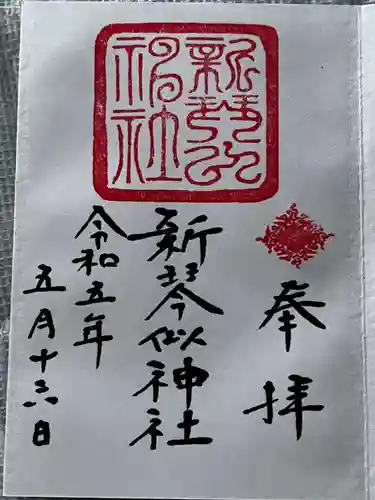 奉拝
新琴似神社
令和五年
五月十六日
新琴似
神社